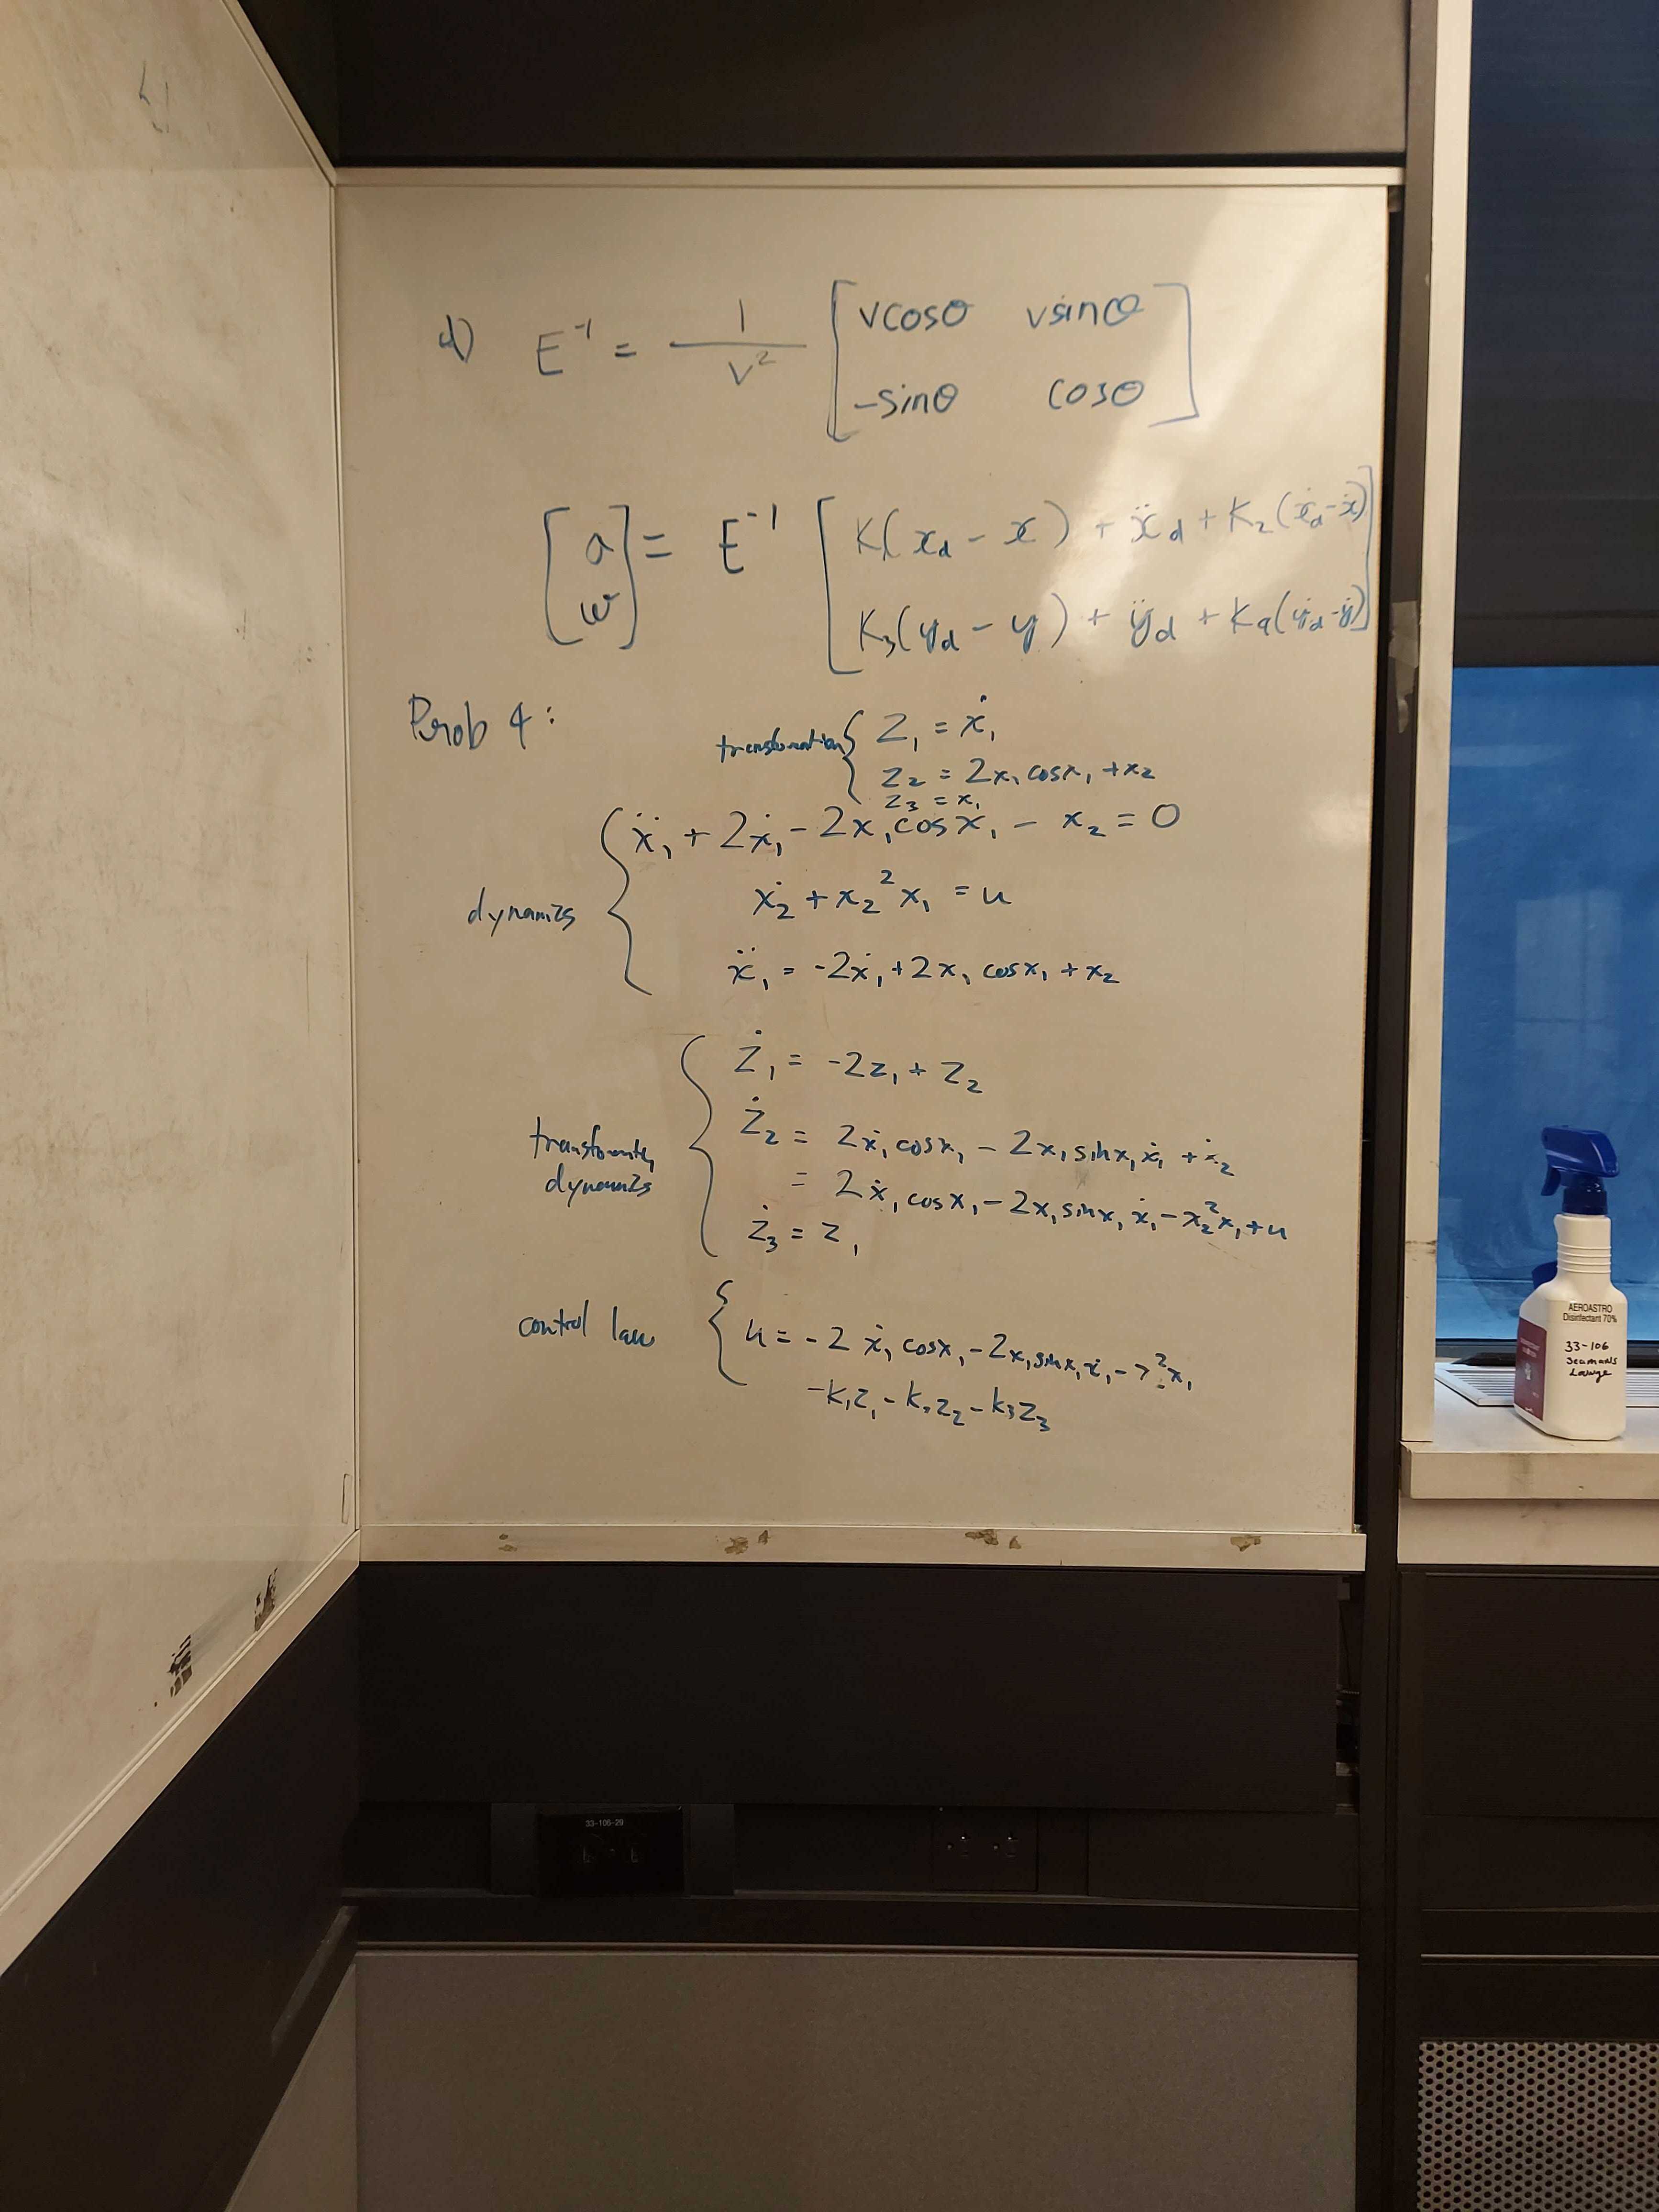 d) E⁻¹ = 1/v² [ vcosθ vsinθ
-sinθ cosθ ]
[ a
w ] = E⁻¹ [ K₁(x_d - x) + ẍ_d + K₂(ẋ_d - ẋ)
K₃(y_d - y) + ÿ_d + K₄(ẏ_d - ẏ) ]
Prob 4:
transformation { Z₁ = ẋ₁
Z₂ = 2x₁ cosx₁ + x₂
Z₃ = x₁
dynamics { ẍ₁ + 2ẋ₁ - 2x₁cosx₁ - x₂ = 0
ẋ₂ + x₂² x₁ = u
ẍ₁ = -2ẋ₁ + 2x₁ cosx₁ + x₂
dynamics { Ż₁ = -2z₁ + Z₂
Ż₂ = 2ẋ₁ cosx₁ - 2x₁ sinx₁ ẋ₁ + ẋ₂
= 2ẋ₁ cosx₁ - 2x₁ sinx₁ ẋ₁ - x₂² x₁ + u
Ż₃ = Z₁
control law { u = -2 ẋ₁ cosx₁ - 2x₁ sinx₁ ẋ₁ - ² x₁
-k₁z₁ - k₂z₂ - k₃z₃
AEROASTRO
Disinfectant 70%
33-106
Seamans
Lounge
33-106-29